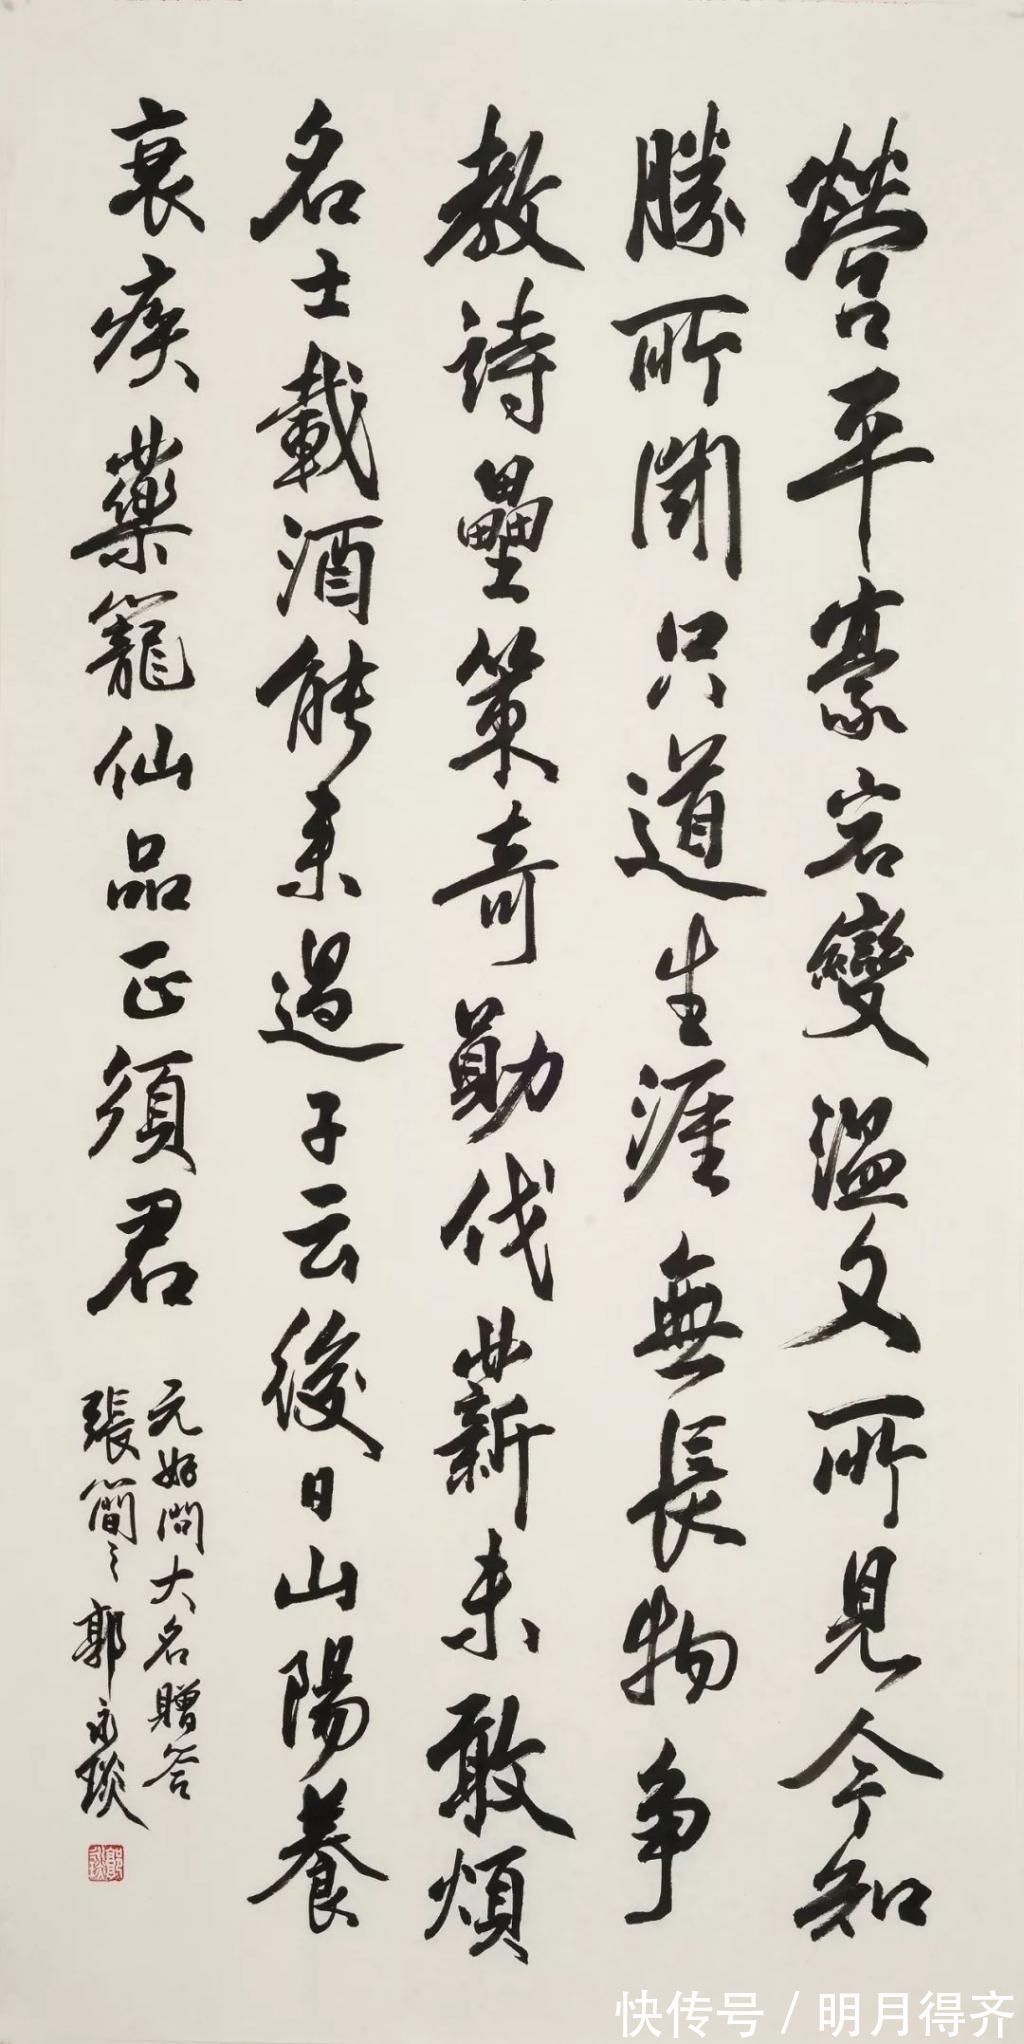 營平豪宕變溫文所見今知
勝所聞只道生涯無長物爭
教詩壘策奇勳伐薪未敢煩
名士載酒能來過子云後日山陽養
衰疾藥籠仙品正須君
元好問大名贈答
張簡之郭永琰
快传号 / 明月得齐